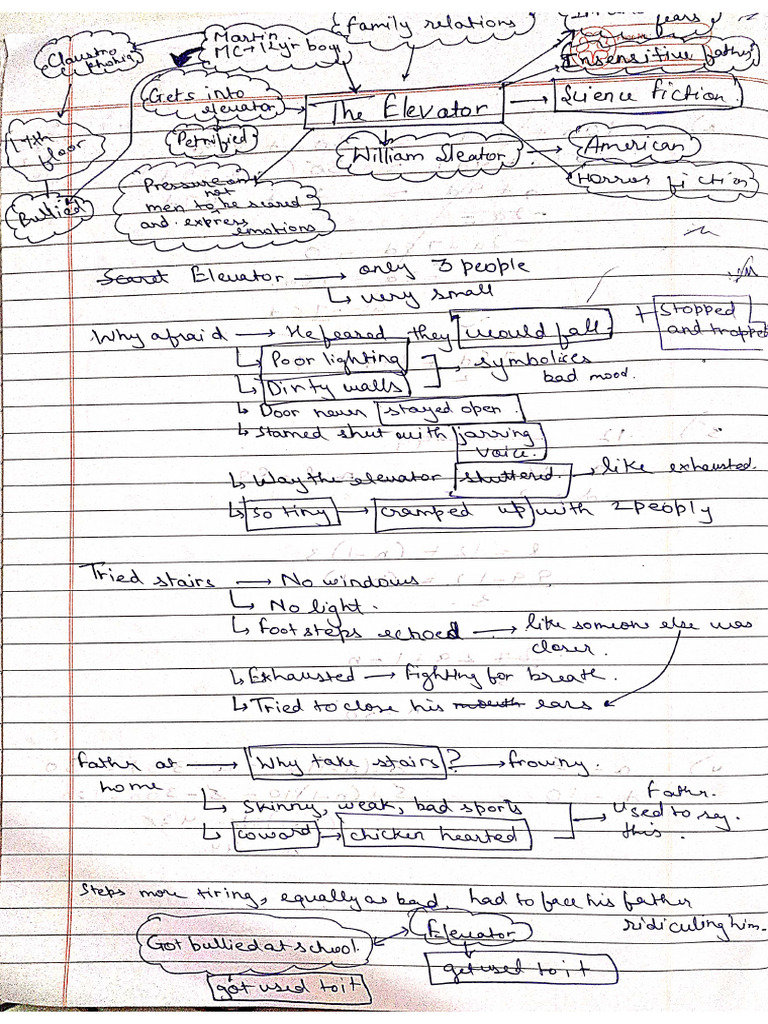 Family relations
fears
Martin
MC → 12yr boy
Claustro
phobia
Insensitive father
Gets into
elevator
The Elevator → Science fiction
17th
floor
Petrified
William Sleator → American
Horror fiction
Bullied
Pressure on
not
men to be scared
and express
emotions
Secret Elevator → only 3 people
↳ very small
Why afraid → He feared they would fall. + stopped
and trapped
↳ Poor lighting
↳ Dirty walls → symbolizes
bad mood.
↳ Door never stayed open.
↳ slamed shut with jarring
voice.
↳ Way the elevator shuttered → like exhausted.
↳ so tiny → cramped up with 2 peoply
Tried stairs → No windows
↳ No light.
↳ foot steps echoed → like someone else was
closer.
↳ Exhausted → fighting for breath.
↳ Tried to close his mouth ears
Fathr at → Why take stairs? → frowiny.
home
↳ skinny, weak, bad sports
↳ coward → chicken hearted
Fathr.
→ used to say
this.
Steps more tiring, equally as bad, had to face his father
ridiculing him.
Got bullied at school.
Elevator
got used to it
get used to it